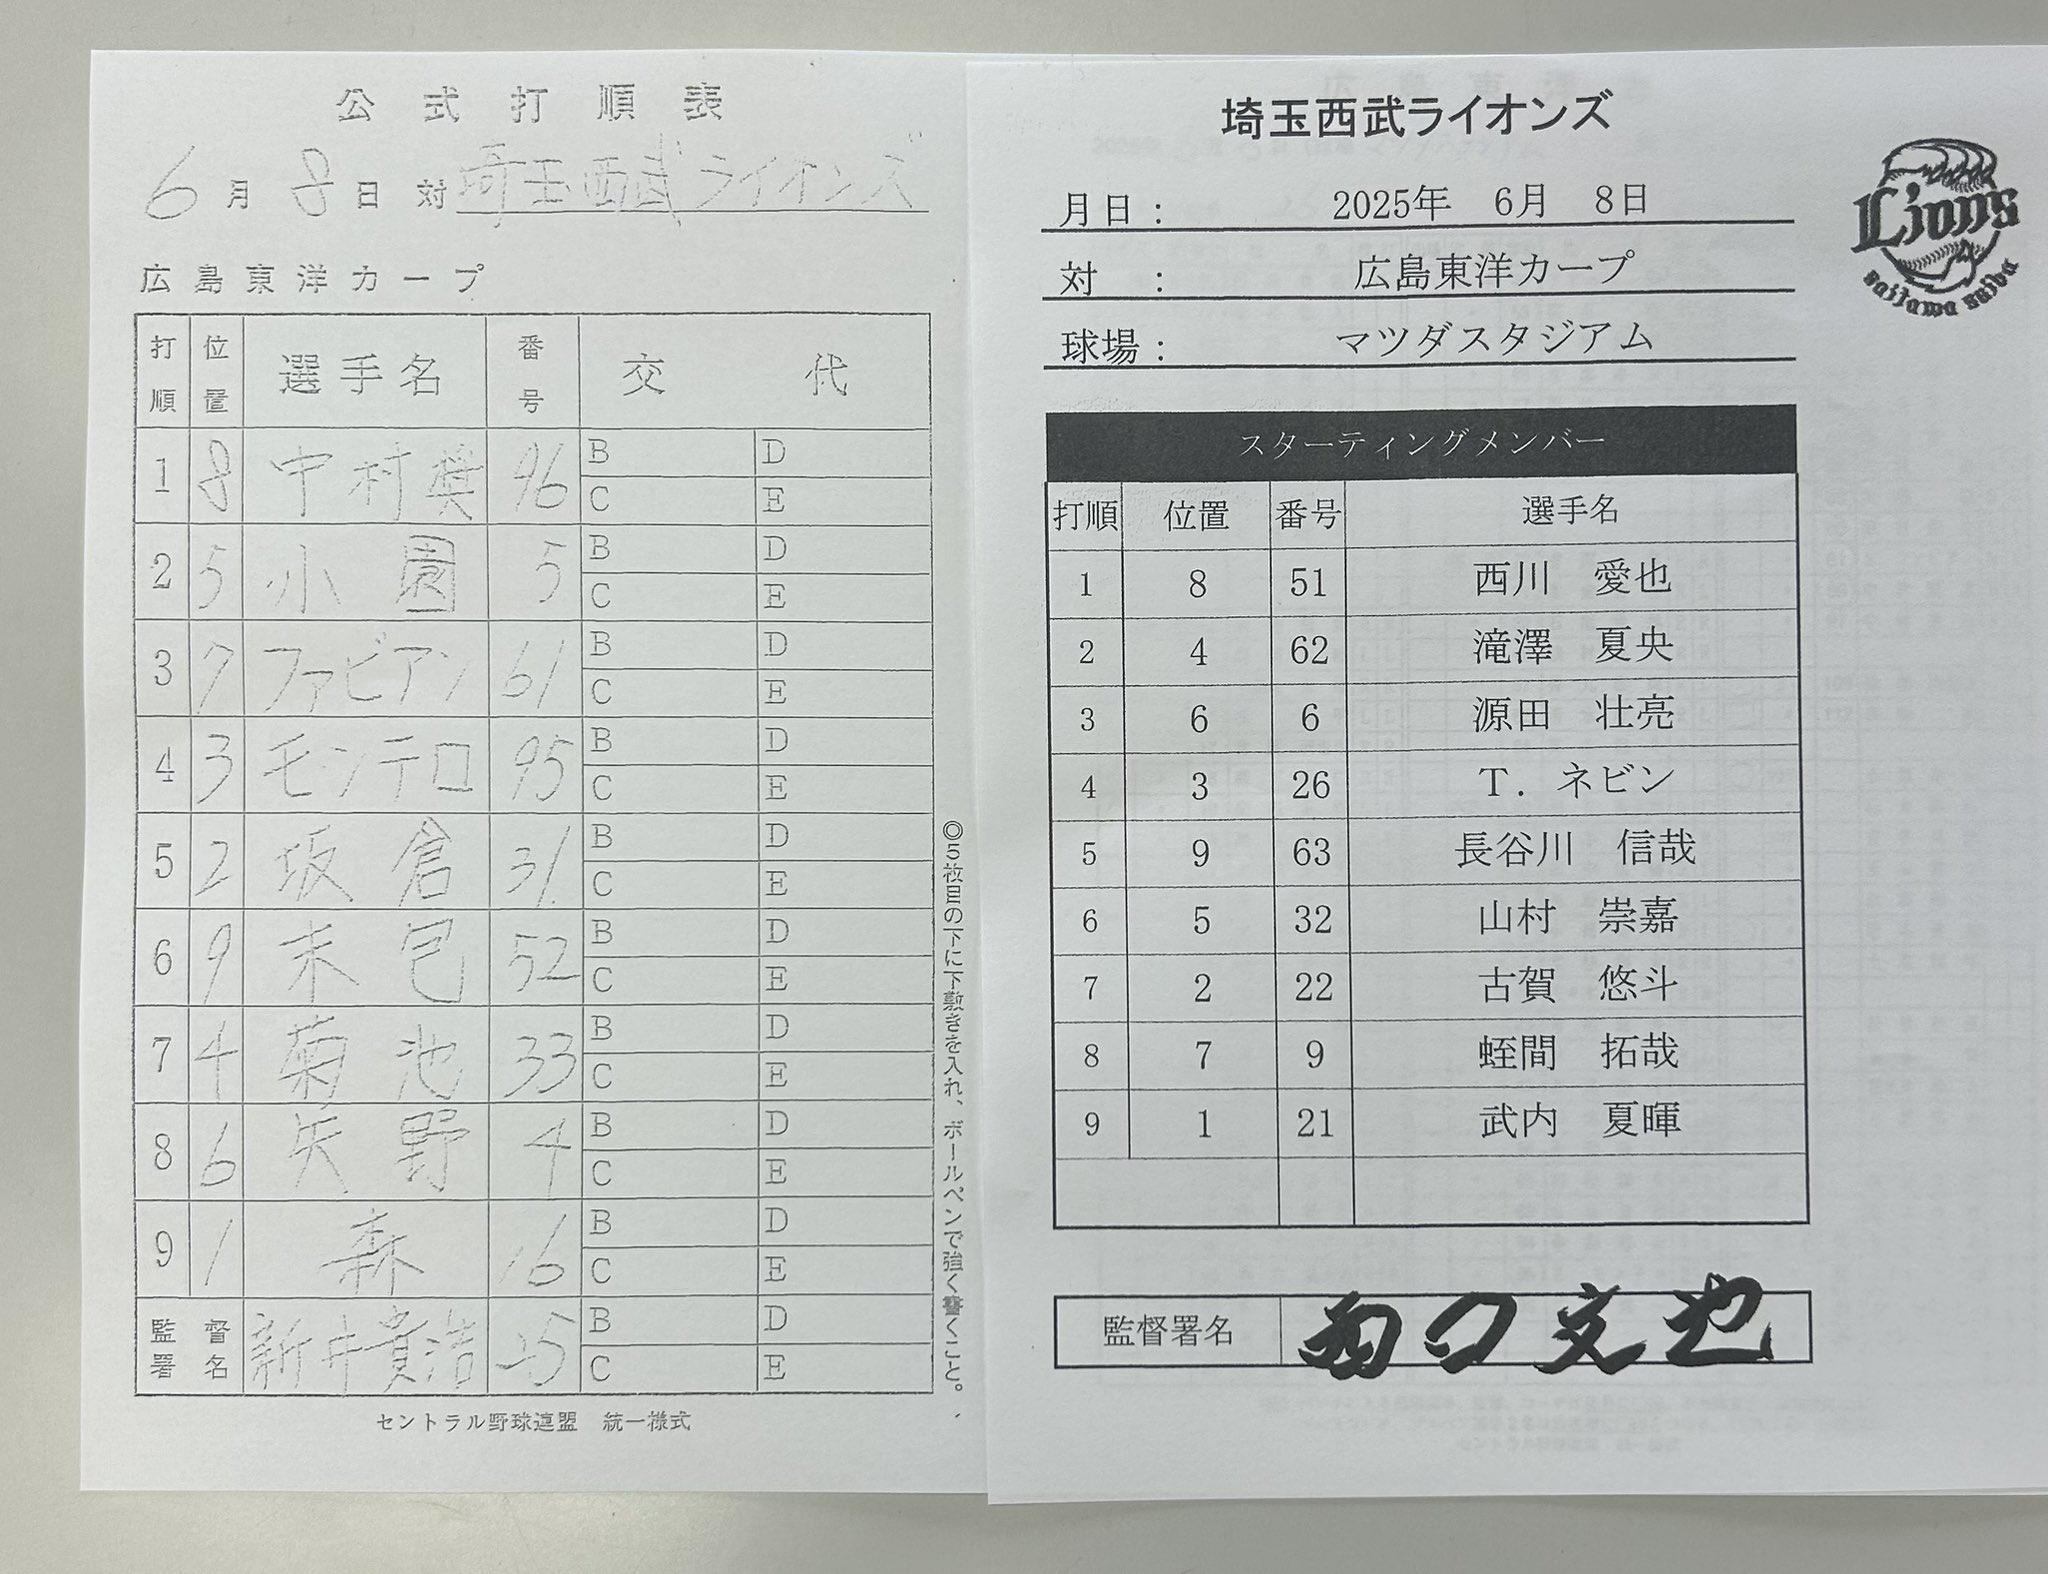 公式打順表
6月8日 対 埼玉西武ライオンズ
広島東洋カープ
打順 位置 選手名 番号 交代
1 8 中村奨 96 B D C E
2 5 小園 5 B D C E
3 7 ファビアン 61 B D C E
4 3 モンテロ 95 B D C E
5 2 坂倉 31 B D C E
6 9 末包 52 B D C E
7 4 菊池 33 B D C E
8 6 矢野 4 B D C E
9 1 森 16 B D C E
監督署名 新井貴浩 25 B D C E
セントラル野球連盟 統一様式
◎5枚目の下に下敷きを入れ、ボールペンで強く書くこと。
埼玉西武ライオンズ
Lions
saitama seibu
月日: 2025年 6月 8日
対 : 広島東洋カープ
球場: マツダスタジアム
スターティングメンバー
打順 位置 番号 選手名
1 8 51 西川 愛也
2 4 62 滝澤 夏央
3 6 6 源田 壮亮
4 3 26 T. ネビン
5 9 63 長谷川 信哉
6 5 32 山村 崇嘉
7 2 22 古賀 悠斗
8 7 9 蛭間 拓哉
9 1 21 武内 夏暉
監督署名 西口文也